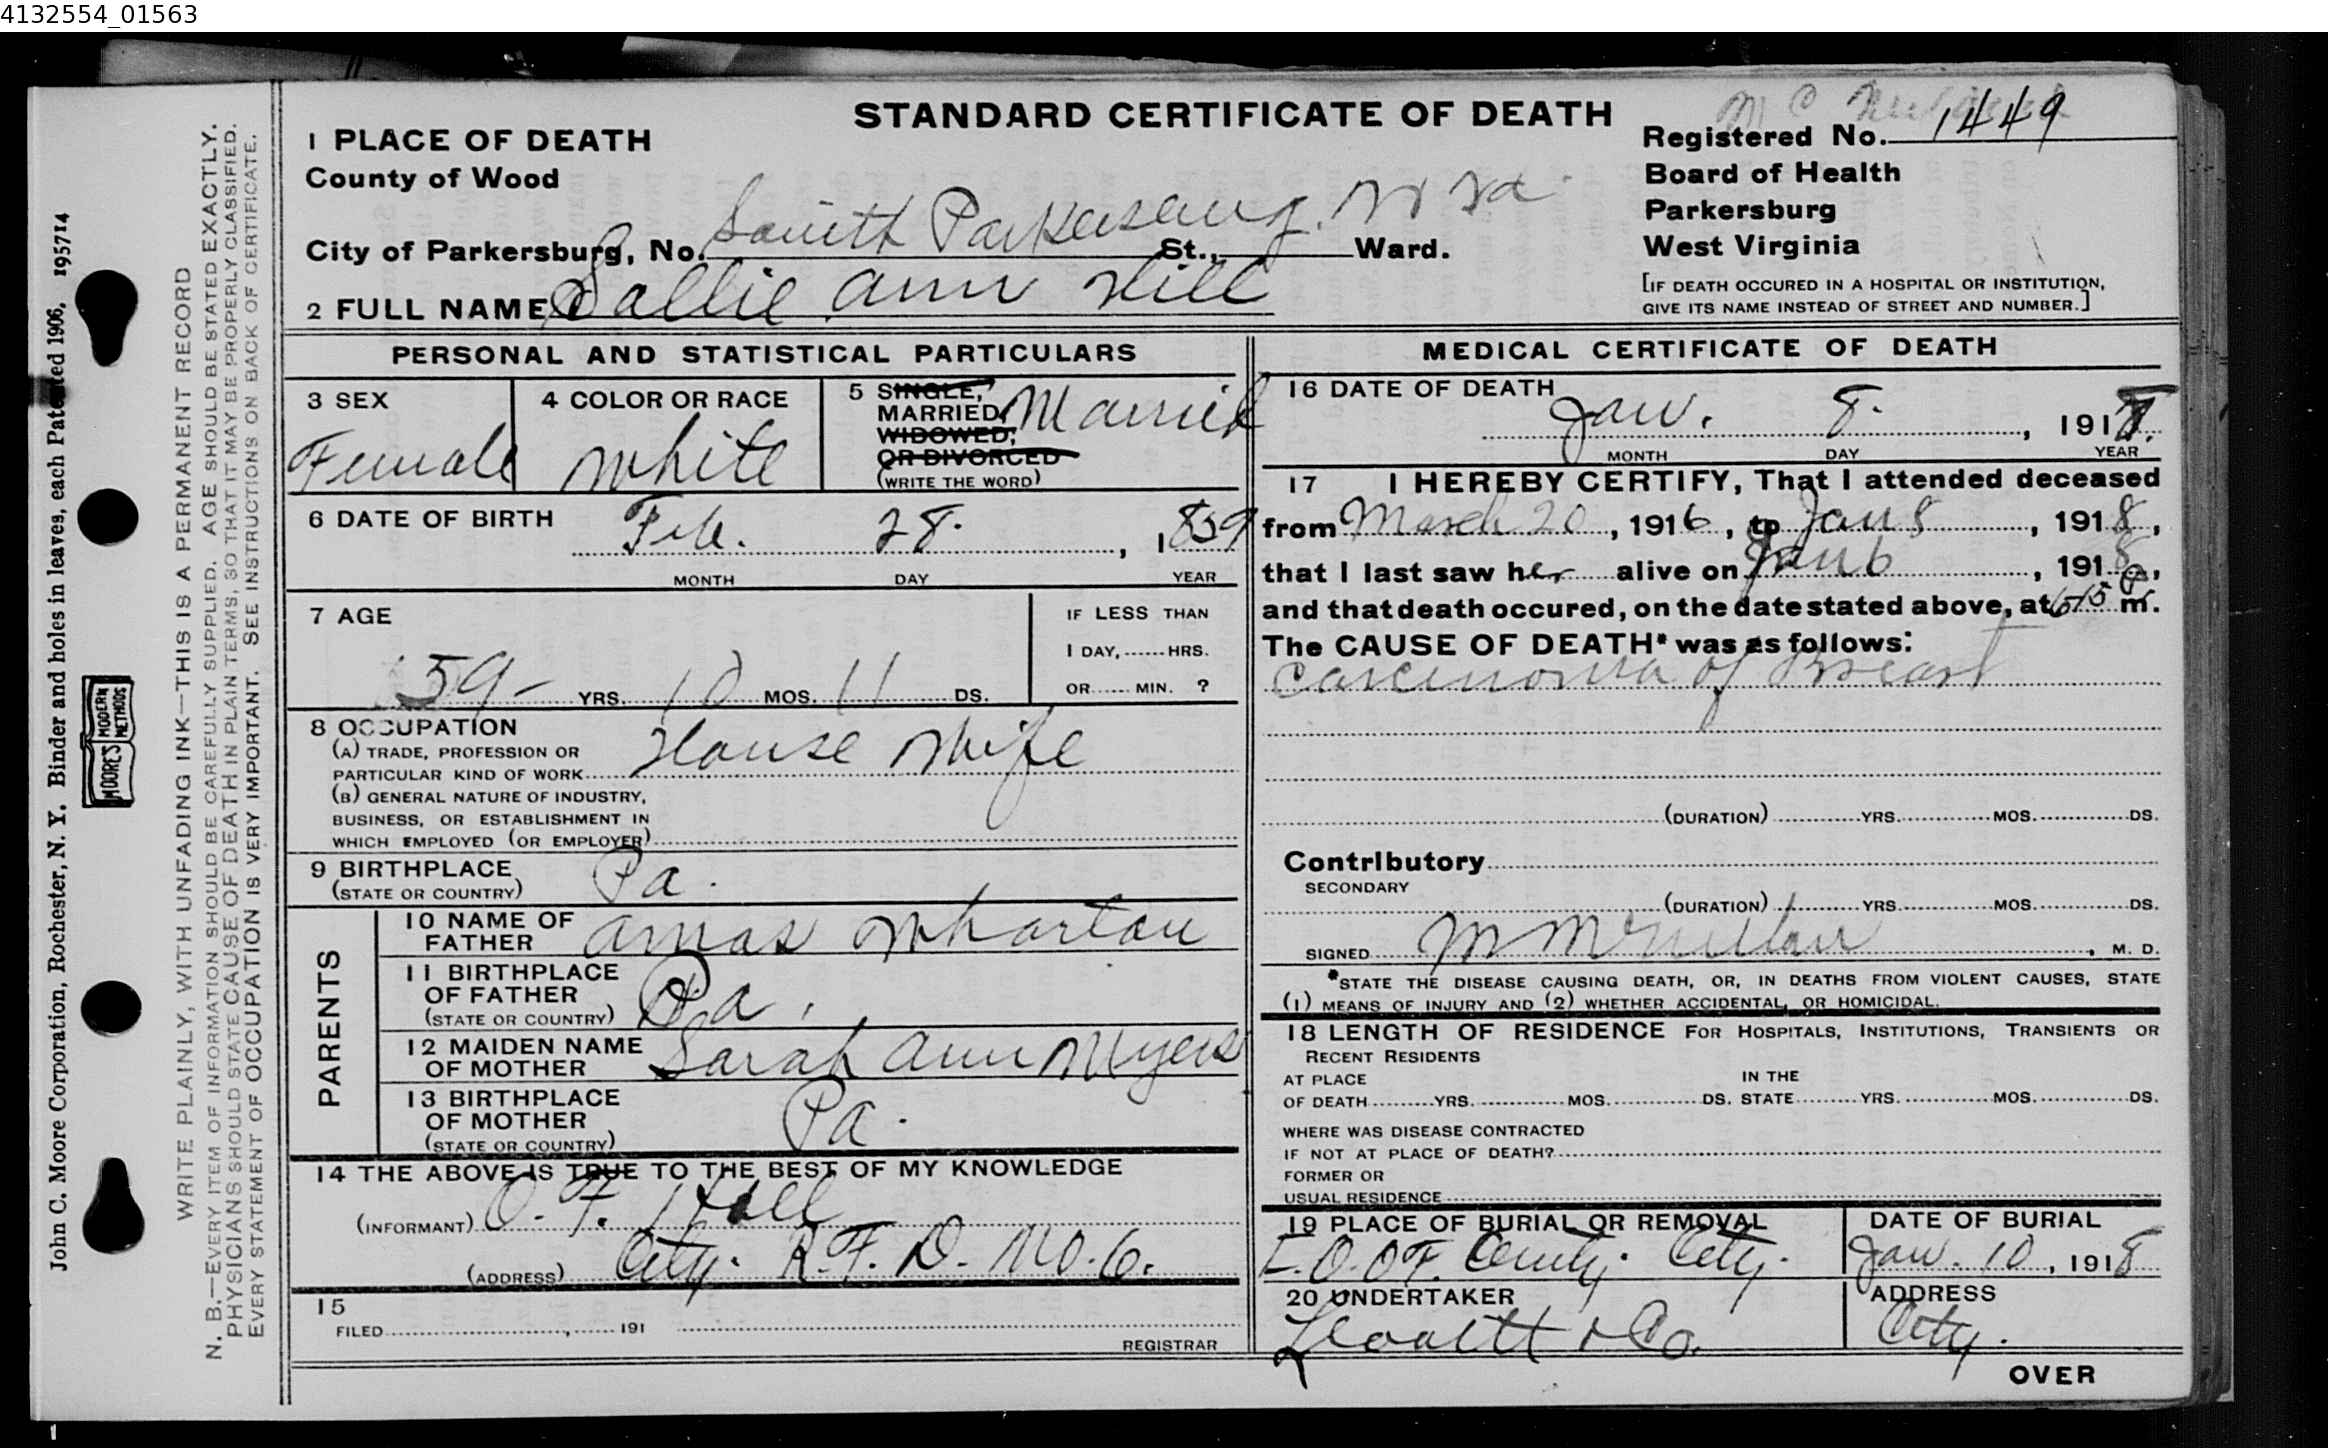 4132554_01563
STANDARD CERTIFICATE OF DEATH
1 PLACE OF DEATH
County of Wood
City of Parkersburg, No. South Parkersburg. W Va St., Ward.
2 FULL NAME Sallie Ann Hill
Registered No. 1449
Board of Health
Parkersburg
West Virginia
[IF DEATH OCCURED IN A HOSPITAL OR INSTITUTION,
GIVE ITS NAME INSTEAD OF STREET AND NUMBER.]
PERSONAL AND STATISTICAL PARTICULARS
3 SEX
Female
4 COLOR OR RACE
White
5 SINGLE,
MARRIED, Married
WIDOWED,
OR DIVORCED
(WRITE THE WORD)
6 DATE OF BIRTH
Feb. 28. , 1859
MONTH DAY YEAR
7 AGE
59- YRS. 10 MOS. 11 DS.
IF LESS THAN
1 DAY, HRS.
OR MIN. ?
8 OCCUPATION
(A) TRADE, PROFESSION OR
PARTICULAR KIND OF WORK House Wife
(B) GENERAL NATURE OF INDUSTRY,
BUSINESS, OR ESTABLISHMENT IN
WHICH EMPLOYED (OR EMPLOYER)
9 BIRTHPLACE
(STATE OR COUNTRY) Pa.
PARENTS
10 NAME OF
FATHER Amos Wharton
11 BIRTHPLACE
OF FATHER
(STATE OR COUNTRY) Pa.
12 MAIDEN NAME
OF MOTHER Sarah Ann Myers
13 BIRTHPLACE
OF MOTHER
(STATE OR COUNTRY) Pa.
14 THE ABOVE IS TRUE TO THE BEST OF MY KNOWLEDGE
(INFORMANT) O. F. Hill
(ADDRESS) City. R. F. D. No. 6.
15
FILED , 191
REGISTRAR
MEDICAL CERTIFICATE OF DEATH
16 DATE OF DEATH
Jan. 8. , 1918.
MONTH DAY YEAR
17 I HEREBY CERTIFY, That I attended deceased
from March 20, 1916, to Jan 8, 1918,
that I last saw her alive on Jan 6, 1918,
and that death occured, on the date stated above, at 615 P m.
The CAUSE OF DEATH* was as follows:
Carcinoma of Breast
(DURATION) YRS. MOS. DS.
Contributory
SECONDARY
(DURATION) YRS. MOS. DS.
SIGNED , M. D.
*STATE THE DISEASE CAUSING DEATH, OR, IN DEATHS FROM VIOLENT CAUSES, STATE
(1) MEANS OF INJURY AND (2) WHETHER ACCIDENTAL, OR HOMICIDAL.
18 LENGTH OF RESIDENCE FOR HOSPITALS, INSTITUTIONS, TRANSIENTS OR
RECENT RESIDENTS
AT PLACE IN THE
OF DEATH YRS. MOS. DS. STATE YRS. MOS. DS.
WHERE WAS DISEASE CONTRACTED
IF NOT AT PLACE OF DEATH?
FORMER OR
USUAL RESIDENCE
19 PLACE OF BURIAL OR REMOVAL
I. O. O. F. Cemty. City.
DATE OF BURIAL
Jan. 10, 1918
20 UNDERTAKER
Leavitt & Co.
ADDRESS
City.
OVER
WRITE PLAINLY, WITH UNFADING INK—THIS IS A PERMANENT RECORD
N. B.—EVERY ITEM OF INFORMATION SHOULD BE CAREFULLY SUPPLIED. AGE SHOULD BE STATED EXACTLY.
PHYSICIANS SHOULD STATE CAUSE OF DEATH IN PLAIN TERMS, SO THAT IT MAY BE PROPERLY CLASSIFIED.
EVERY STATEMENT OF OCCUPATION IS VERY IMPORTANT. SEE INSTRUCTIONS ON BACK OF CERTIFICATE.
John C. Moore Corporation, Rochester, N. Y. Binder and holes in leaves, each Patented 1906, 195714
MOORE'S MODERN METHODS